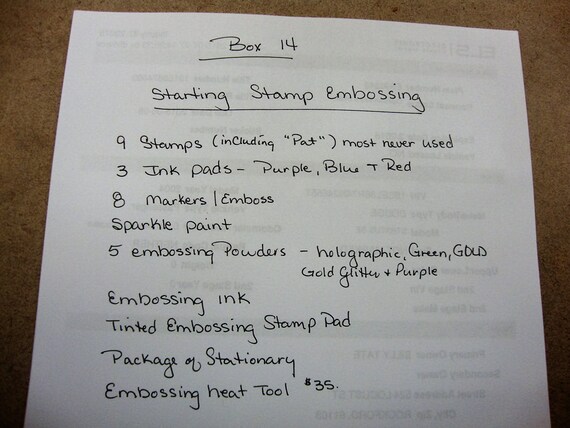 Box 14
Starting Stamp Embossing
9 Stamps (including "Pat") most never used
3 Ink pads - Purple, Blue + Red
8 markers / Emboss
Sparkle paint
5 embossing Powders - holographic, Green, GOLD
Gold Glitter + Purple
Embossing ink
Tinted Embossing Stamp Pad
Package of Stationary
Embossing heat Tool $35.